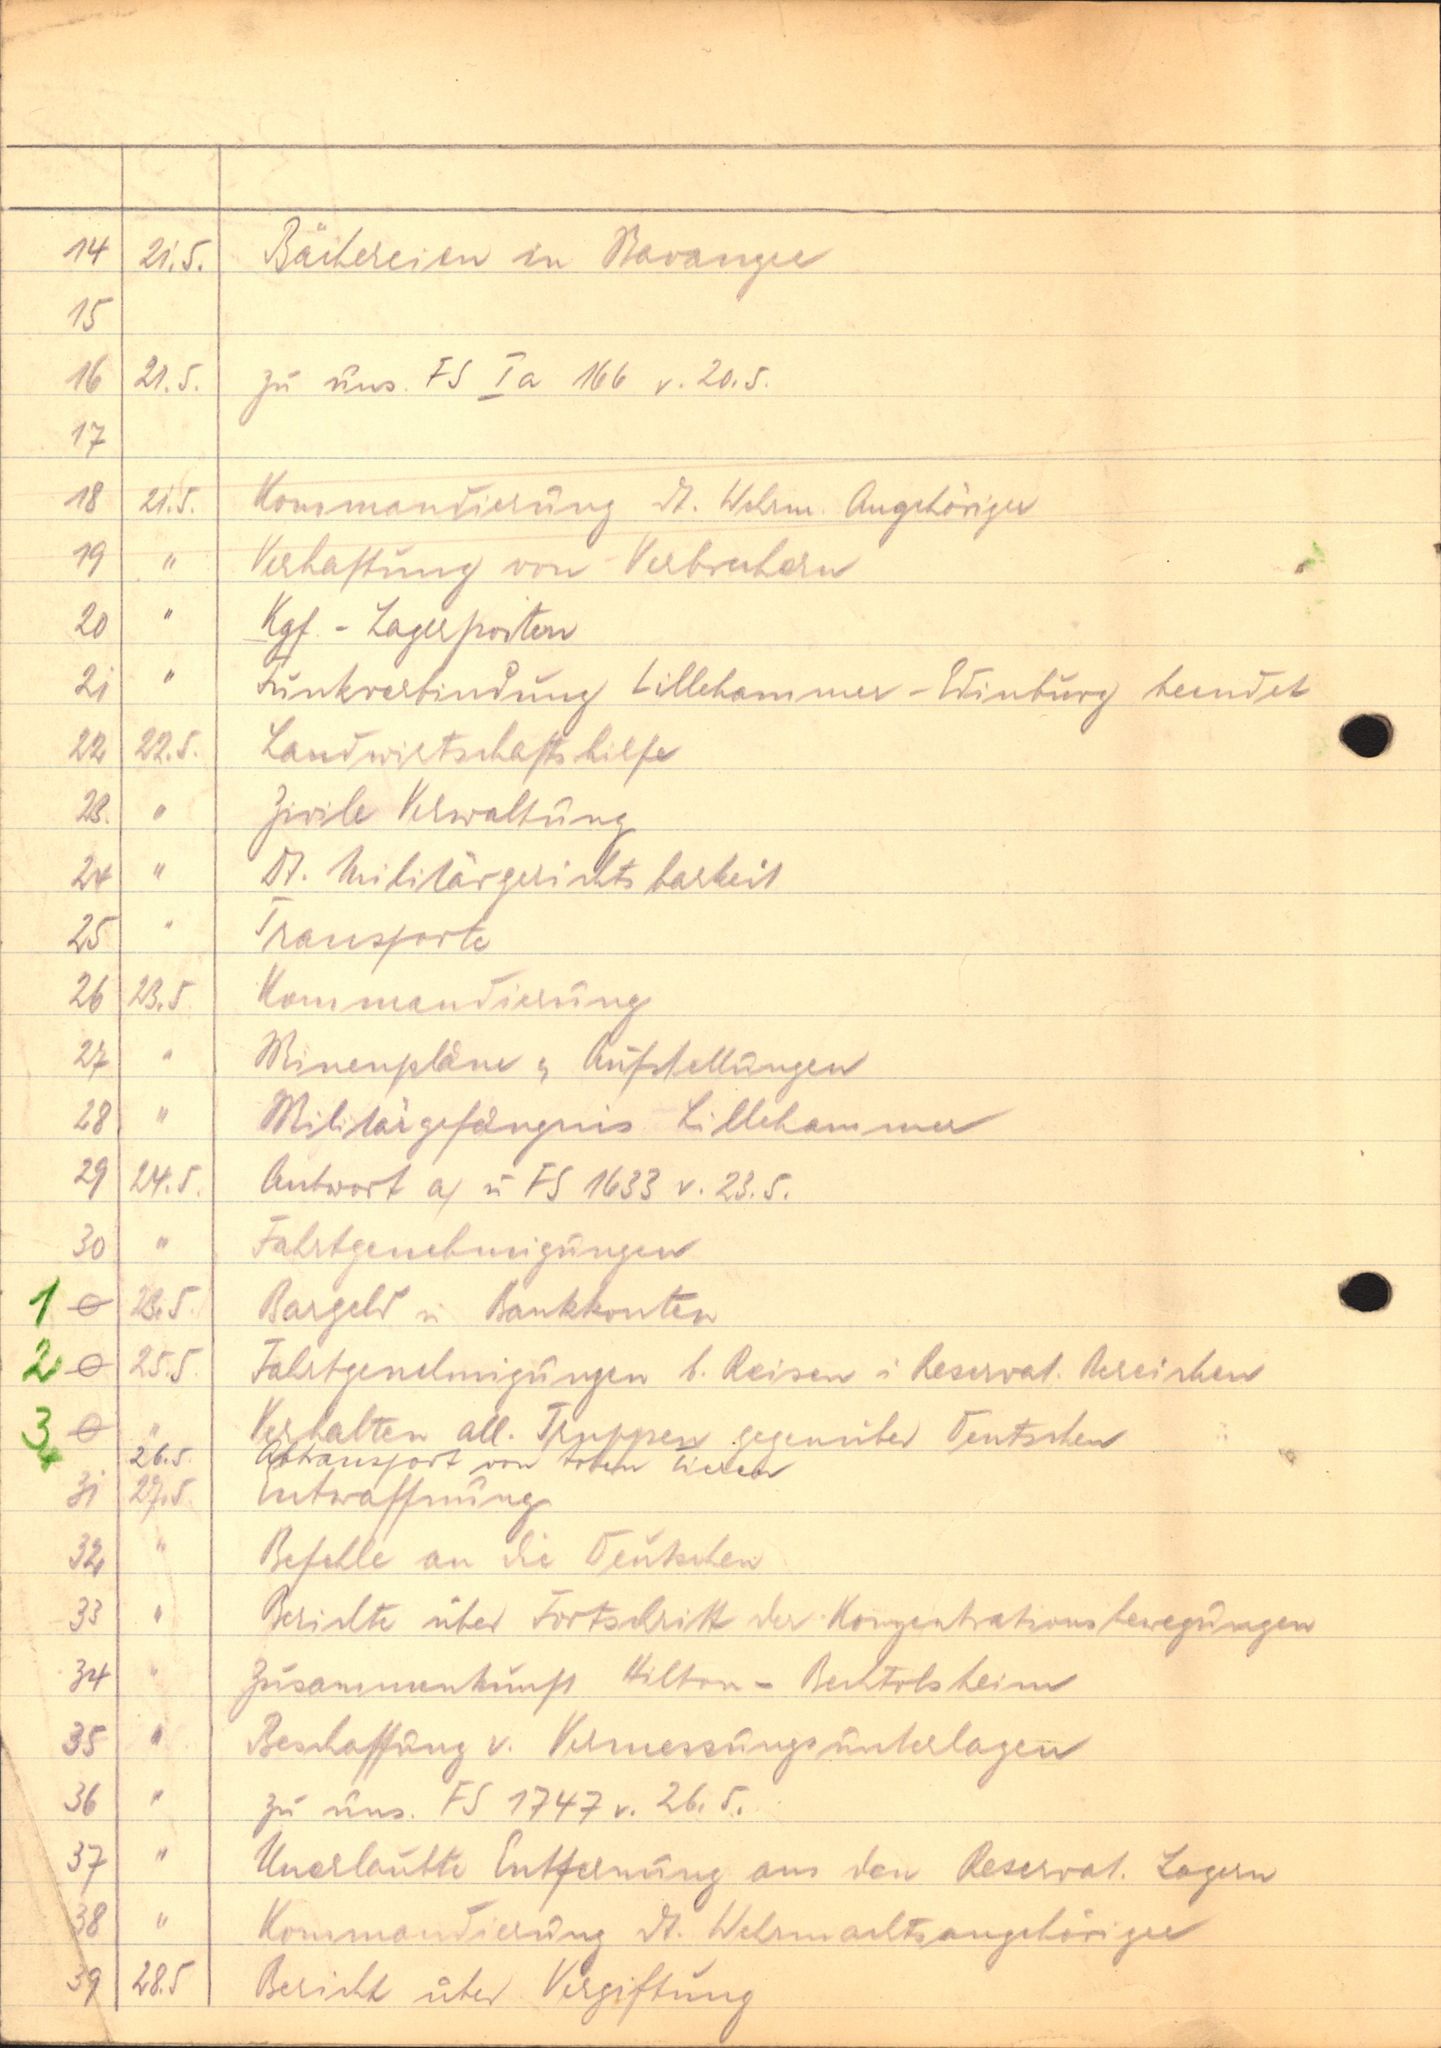 14 21.5. Bäckereien in Stavanger
15
16 21.5. zu uns. FS Ia 166 v. 20.5.
17
18 21.5. Kommandierung dt. Wehrm. Angehöriger
19 " Verhaftung von Verbrechern
20 " Kgf. - Lagerposten
21 " Funkverbindung Lillehammer - Edinburg beendet
22 22.5. Landwirtschaftshilfe
23. " Zivile Verwaltung
24 " Dt. Militärgerichtsbarkeit
25 " Transporte
26 23.5. Kommandierung
27 " Minenpläne u. Aufstellungen
28 " Militärgefängnis Lillehammer
29 24.5. Antwort a/ u FS 1633 v. 23.5.
30 " Fahrtgenehmigungen
1 Ø 23.5. Bargeld u Bankkonten
2 Ø 25.5. Fahrtgenehmigungen b. Reisen i Reservat. Bereichen
3 Ø " Verhalten all. Truppen gegenüber Deutschen
4 26.5. Abtransport von toten Tieren
31 27.5. Entwaffnung
32 " Befehle an die Deutschen
33 " Berichte über Fortschritt der Konzentrationsbewegungen
34 " Zusammenkunft Hilton - Bechtolsheim
35 " Beschaffung v. Vermessungsunterlagen
36 " zu uns. FS 1747 v. 26.5.
37 " Unerlaubte Entfernung aus den Reservat. Lagern
38 " Kommandierung dt. Wehrmachtsangehöriger
39 28.5 Bericht über Vergiftung